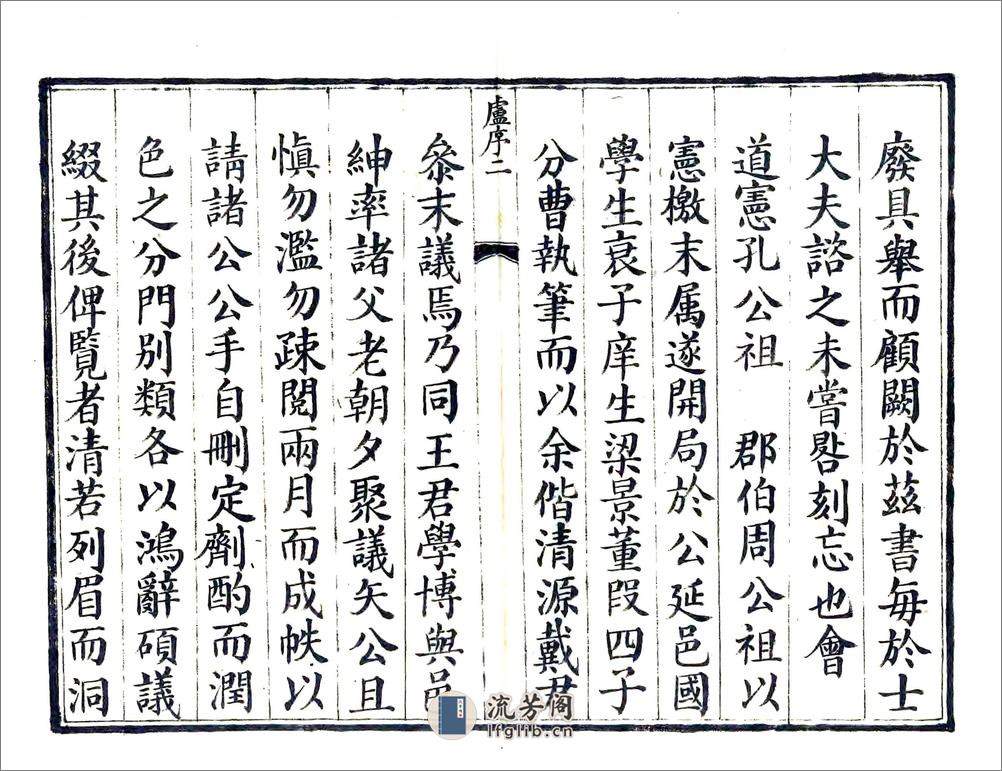 廢具舉而顧闕於茲書每於士
大夫諮之未嘗晷刻忘也會
道憲孔公祖　郡伯周公祖以
憲檄末属遂開局於公延邑國
學生袁子庠生梁景董段四子
分曹執筆而以余偕清源戴君
盧序二
叅末議焉乃同王君學博與邑
紳率諸父老朝夕聚議矢公且
愼勿濫勿疎閲兩月而成帙以
請諸公公手自刪定劑酌而潤
色之分門别類各以鴻辭碩議
綴其後俾覧者清若列眉而洞
流芳阁
lfglib.cn